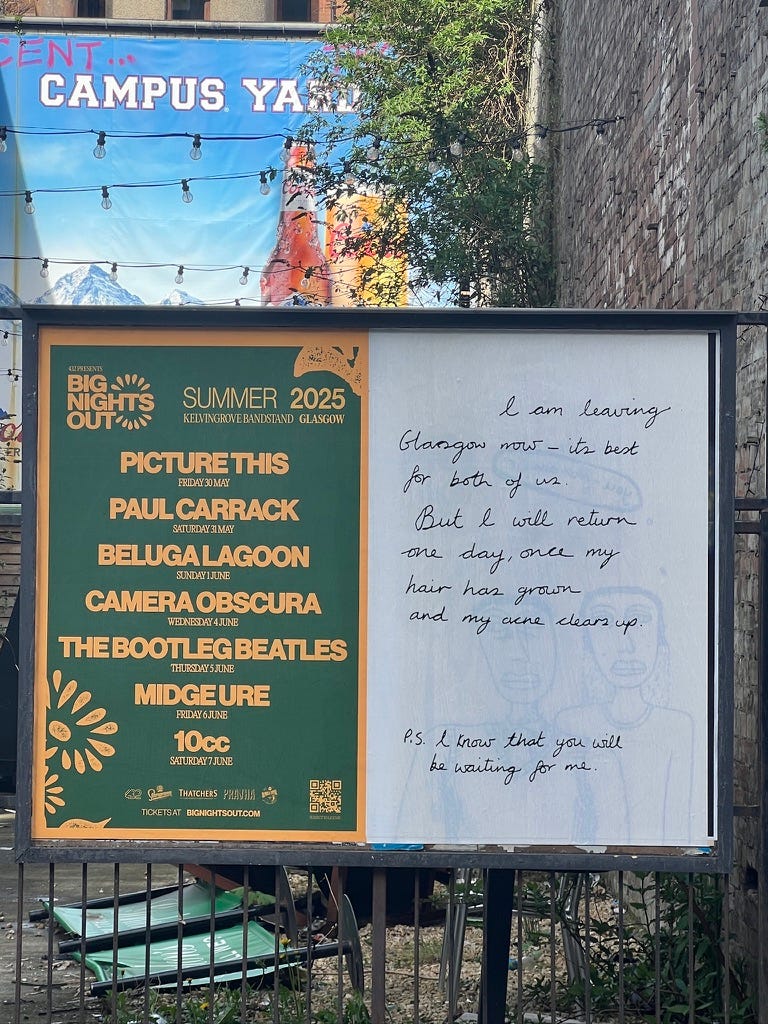 CENT...
CAMPUS YARD
432 PRESENTS
BIG
NIGHTS
OUT
SUMMER 2025
KELVINGROVE BANDSTAND GLASGOW
PICTURE THIS
FRIDAY 30 MAY
PAUL CARRACK
SATURDAY 31 MAY
BELUGA LAGOON
SUNDAY 1 JUNE
CAMERA OBSCURA
WEDNESDAY 4 JUNE
THE BOOTLEG BEATLES
THURSDAY 5 JUNE
MIDGE URE
FRIDAY 6 JUNE
10cc
SATURDAY 7 JUNE
432
THATCHERS
PRAVHA
TICKETS AT BIGNIGHTSOUT.COM
I am leaving
Glasgow now – its best
for both of us.
But I will return
one day, once my
hair has grown
and my acne clears up.
P.S. I know that you will
be waiting for me.